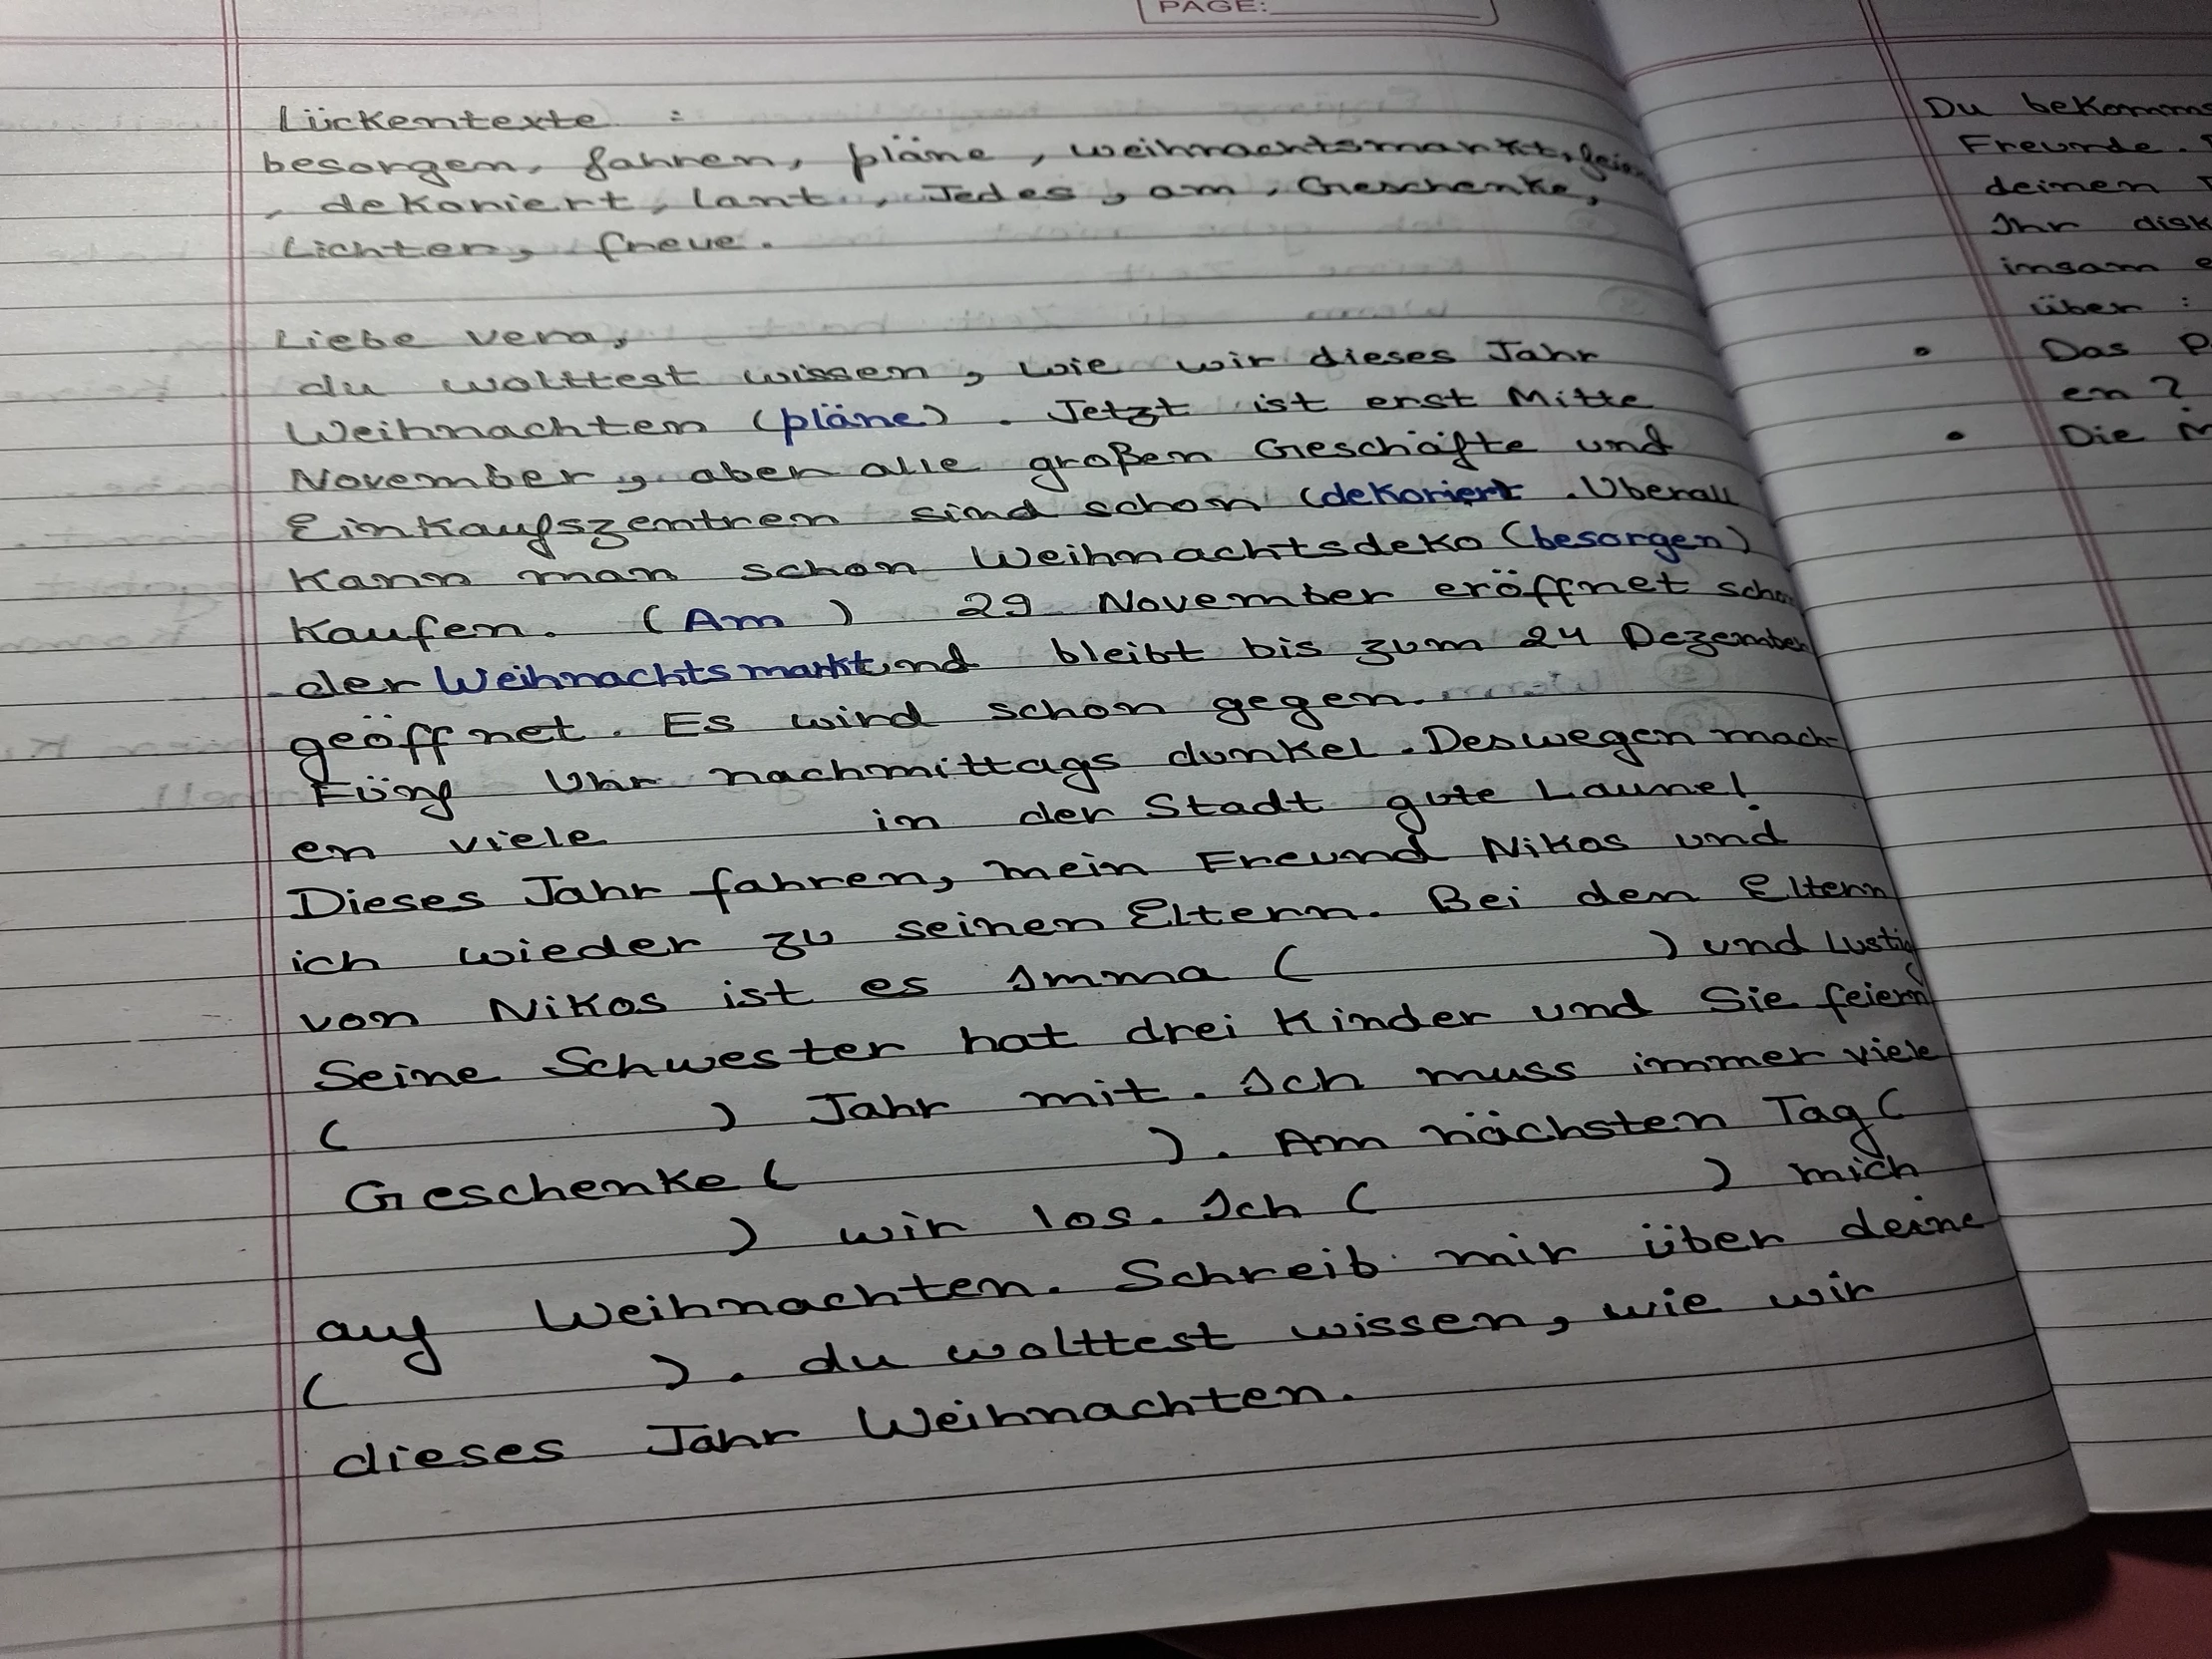 PAGE:
Lückentexte :
besorgen, fahren, pläne, weihnachtsmarkt, feiern
, dekoriert, lant, Jedes, am, Geschenke,
Lichter, freue.
Liebe Vera,
du wolttest wissen, wie wir dieses Jahr
Weihnachten (pläne). Jetzt ist erst Mitte
November, aber alle großen Geschäfte und
Einkaufszentren sind schon (dekoriert. Uberall
Kann man schon Weihnachtsdeko (besorgen)
Kaufen. (Am) 29 November eröffnet scho
der Weihnachtsmarkt und bleibt bis zum 24 Dezember
geöffnet. Es wird schon gegen.
Füng Uhr nachmittags dunkel. Deswegen mach-
en viele in der Stadt gute Laune!
Dieses Jahr fahren, mein Freund Nikos und
ich wieder zu seinen Eltern. Bei den Eltern
von Nikos ist es Imma ( ) und Lustig
Seine Schwester hat drei Kinder und Sie feiern
( ) Jahr mit. Ich muss immer viele
Geschenke ( ). Am nächsten Tag (
) wir los. Ich ( ) mich
auf Weihnachten. Schreib mir über deine
( ). du wolttest wissen, wie wir
dieses Jahr Weihnachten.
Du bekomms
Freunde.
deinen
Ihr disk
insam e
über :
• Das P
en ?
• Die